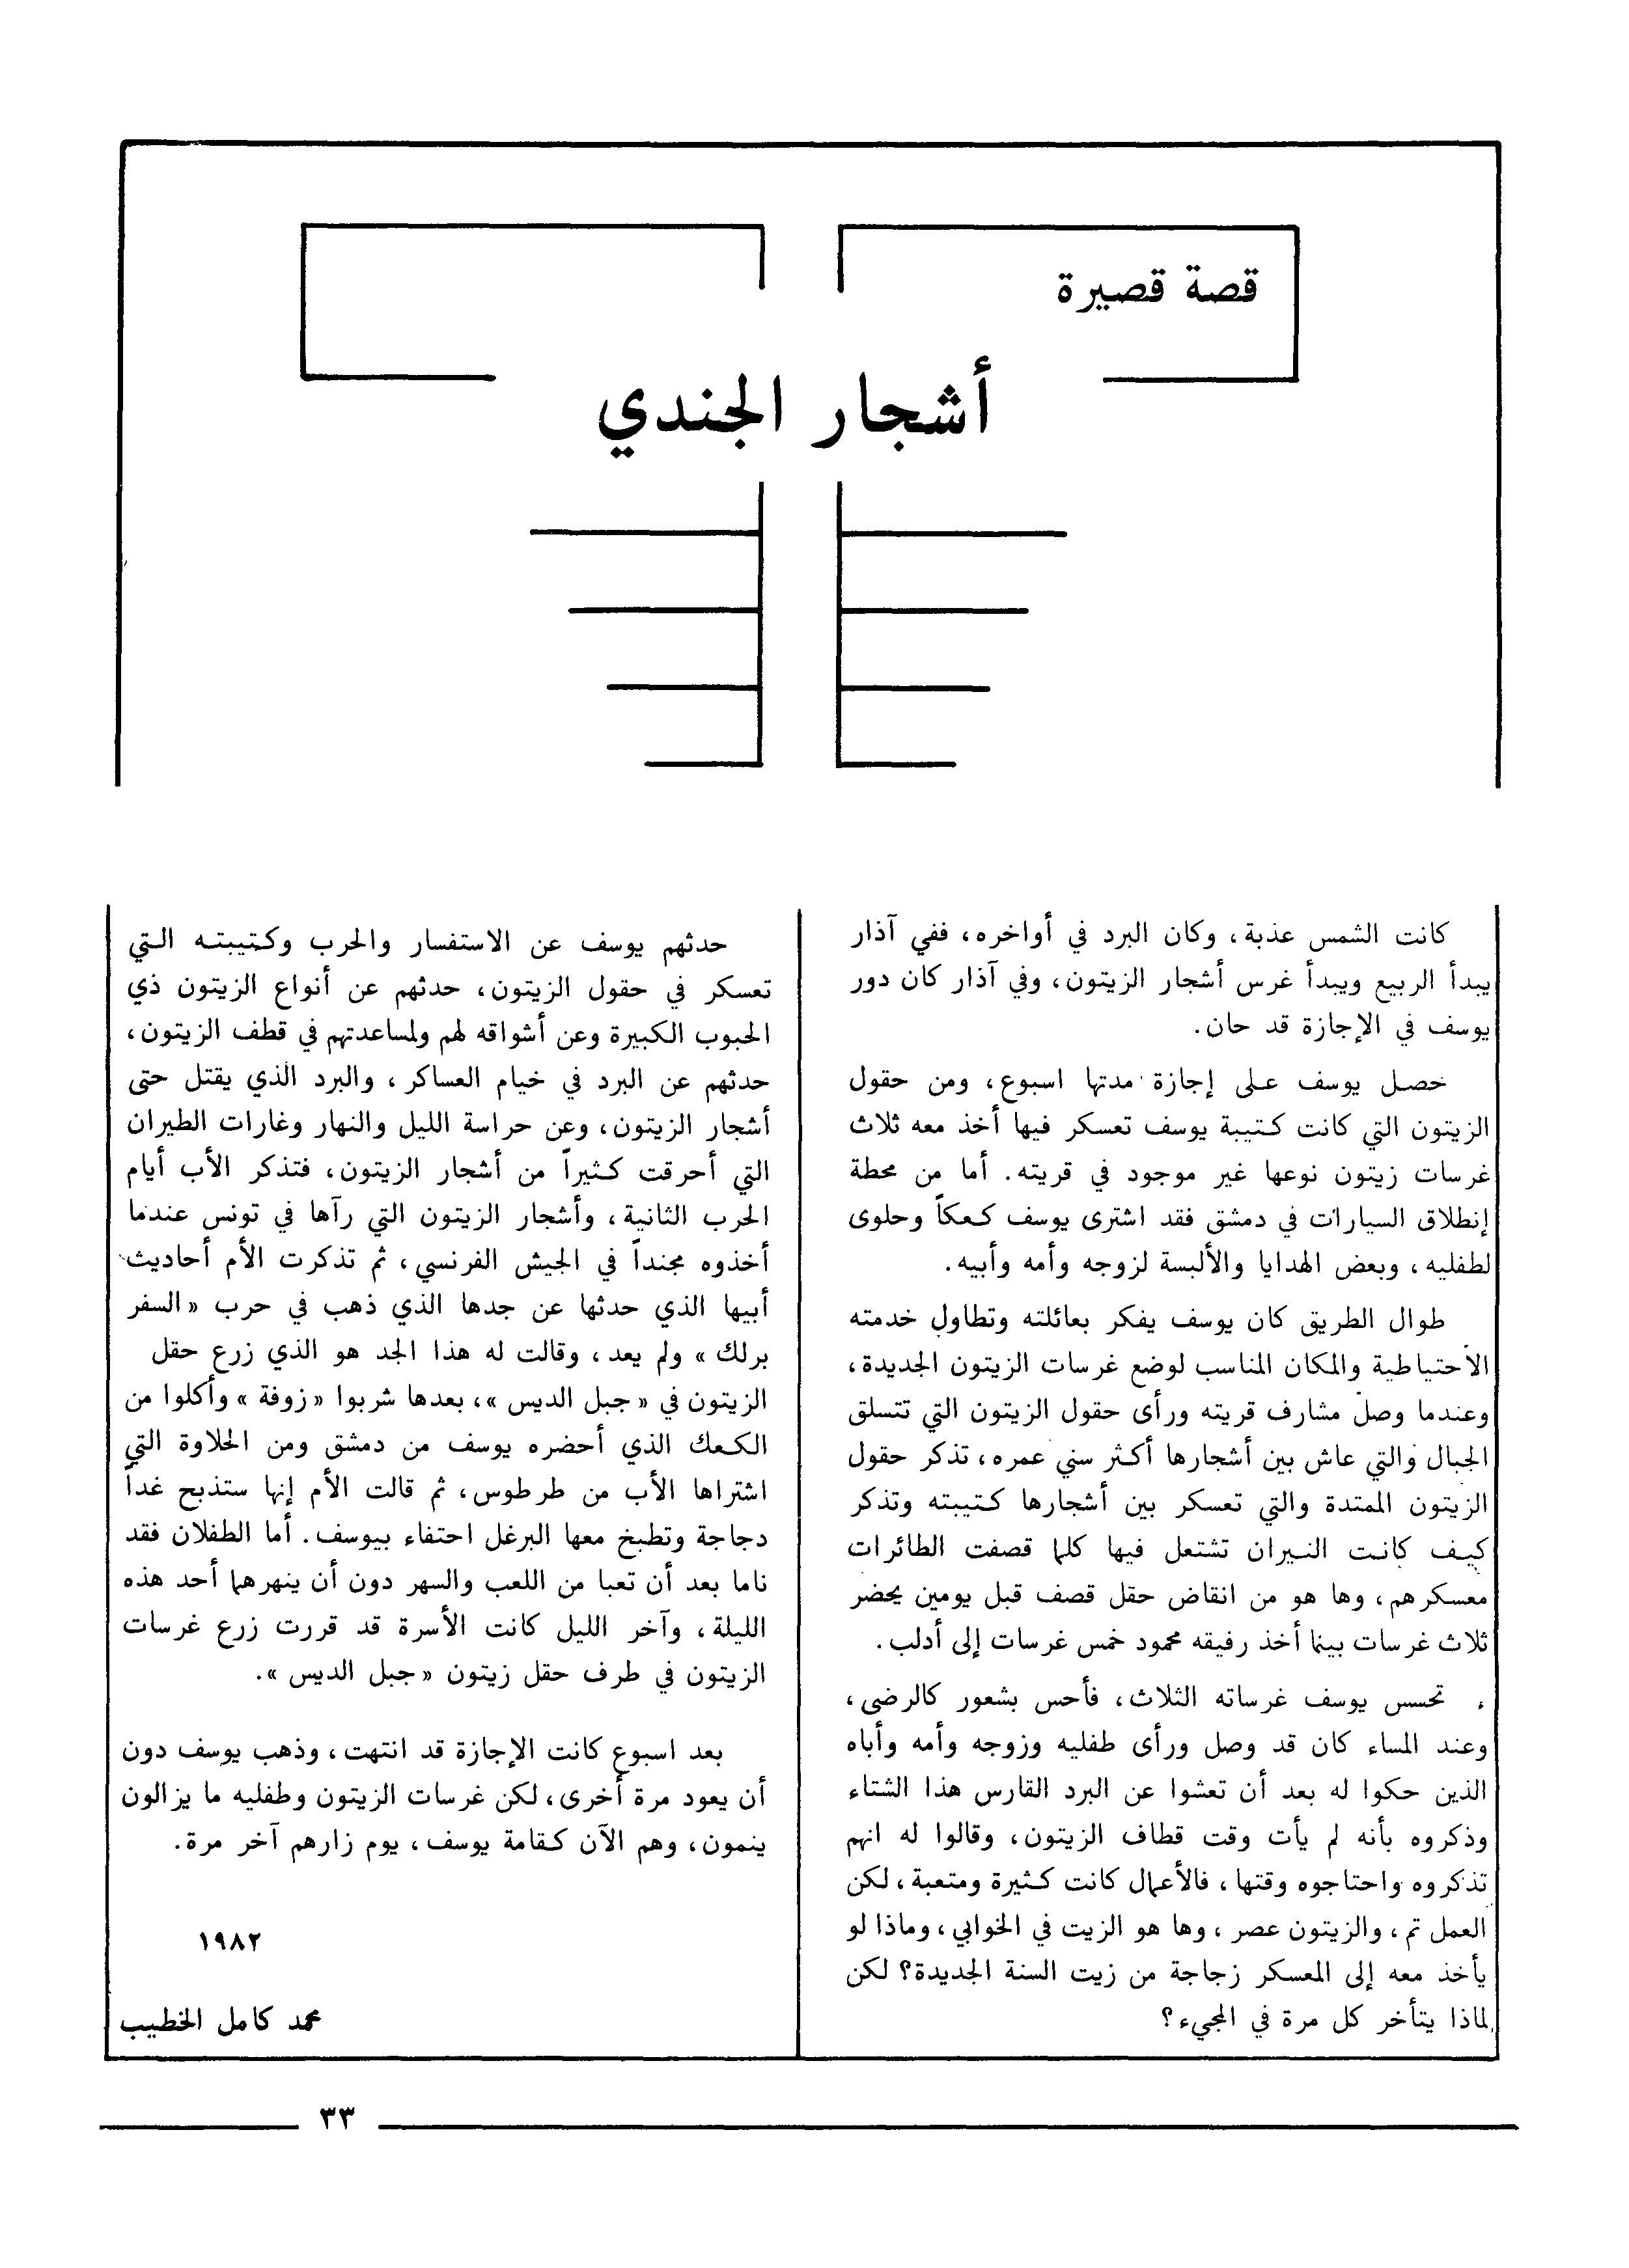 قصة قصيرة
أشجار الجندي
كانت الشمس عذبة، وكان البرد في أواخره، ففي آذار
يبدأ الربيع ويبدأ غرس أشجار الزيتون، وفي آذار كان دور
يوسف في الإجازة قد حان.
حصل يوسف على إجازة مدتها اسبوع، ومن حقول
الزيتون التي كانت كتيبة يوسف تعسكر فيها أخذ معه ثلاث
غرسات زيتون نوعها غير موجود في قريته. أما من محطة
إنطلاق السيارات في دمشق فقد اشترى يوسف كعكاً وحلوى
لطفليه، وبعض الهدايا والألبسة لزوجه وأمه وأبيه.
طوال الطريق كان يوسف يفكر بعائلته وتطاول خدمته
الأحتياطية والمكان المناسب لوضع غرسات الزيتون الجديدة،
وعندما وصل مشارف قريته ورأى حقول الزيتون التي تتسلق
الجبال والتي عاش بين أشجارها أكثر سني عمره، تذكر حقول
الزيتون الممتدة والتي تعسكر بين أشجارها كتيبته وتذكر
كيف كانت النيران تشتعل فيها كلما قصفت الطائرات
معسكرهم، وها هو من انقاض حقل قصف قبل يومين يحضر
ثلاث غرسات بينما أخذ رفيقه محمود خمس غرسات إلى أدلب.
تحسس يوسف غرساته الثلاث، فأحس بشعور كالرضى،
وعند المساء كان قد وصل ورأى طفليه وزوجه وأمه وأباه
الذين حكوا له بعد أن تعشوا عن البرد القارس هذا الشتاء
وذكروه بأنه لم يأت وقت قطاف الزيتون، وقالوا له انهم
تذكروه واحتاجوه وقتها، فالأعمال كانت كثيرة ومتعبة، لكن
العمل تم، والزيتون عصر، وها هو الزيت في الخوابي، وماذا لو
يأخذ معه إلى المعسكر زجاجة من زيت السنة الجديدة؟ لكن
لماذا يتأخر كل مرة في المجيء؟
حدثهم يوسف عن الاستفسار والحرب وكتيبته التي
تعسكر في حقول الزيتون، حدثهم عن أنواع الزيتون ذي
الحبوب الكبيرة وعن أشواقه لهم ولمساعدتهم في قطف الزيتون،
حدثهم عن البرد في خيام العساكر، والبرد الذي يقتل حتى
أشجار الزيتون، وعن حراسة الليل والنهار وغارات الطيران
التي أحرقت كثيراً من أشجار الزيتون، فتذكر الأب أيام
الحرب الثانية، وأشجار الزيتون التي رآها في تونس عندما
أخذوه مجنداً في الجيش الفرنسي، ثم تذكرت الأم أحاديث
أبيها الذي حدثها عن جدها الذي ذهب في حرب «السفر
برلك» ولم يعد، وقالت له هذا الجد هو الذي زرع حقل
الزيتون في «جبل الديس»، بعدها شربوا «زوفة» وأكلوا من
الكعك الذي أحضره يوسف من دمشق ومن الحلاوة التي
اشتراها الأب من طرطوس، ثم قالت الأم إنها ستذبح غداً
دجاجة وتطبخ معها البرغل احتفاء بيوسف. أما الطفلان فقد
ناما بعد أن تعبا من اللعب والسهر دون أن ينهرهما أحد هذه
الليلة، وآخر الليل كانت الأسرة قد قررت زرع غرسات
الزيتون في طرف حقل زيتون «جبل الديس».
بعد اسبوع كانت الإجازة قد انتهت، وذهب يوسف دون
أن يعود مرة أخرى، لكن غرسات الزيتون وطفليه ما يزالون
ينمون، وهم الآن كقامة يوسف، يوم زارهم آخر مرة.
١٩٨٢
محمد كامل الخطيب
٣٣